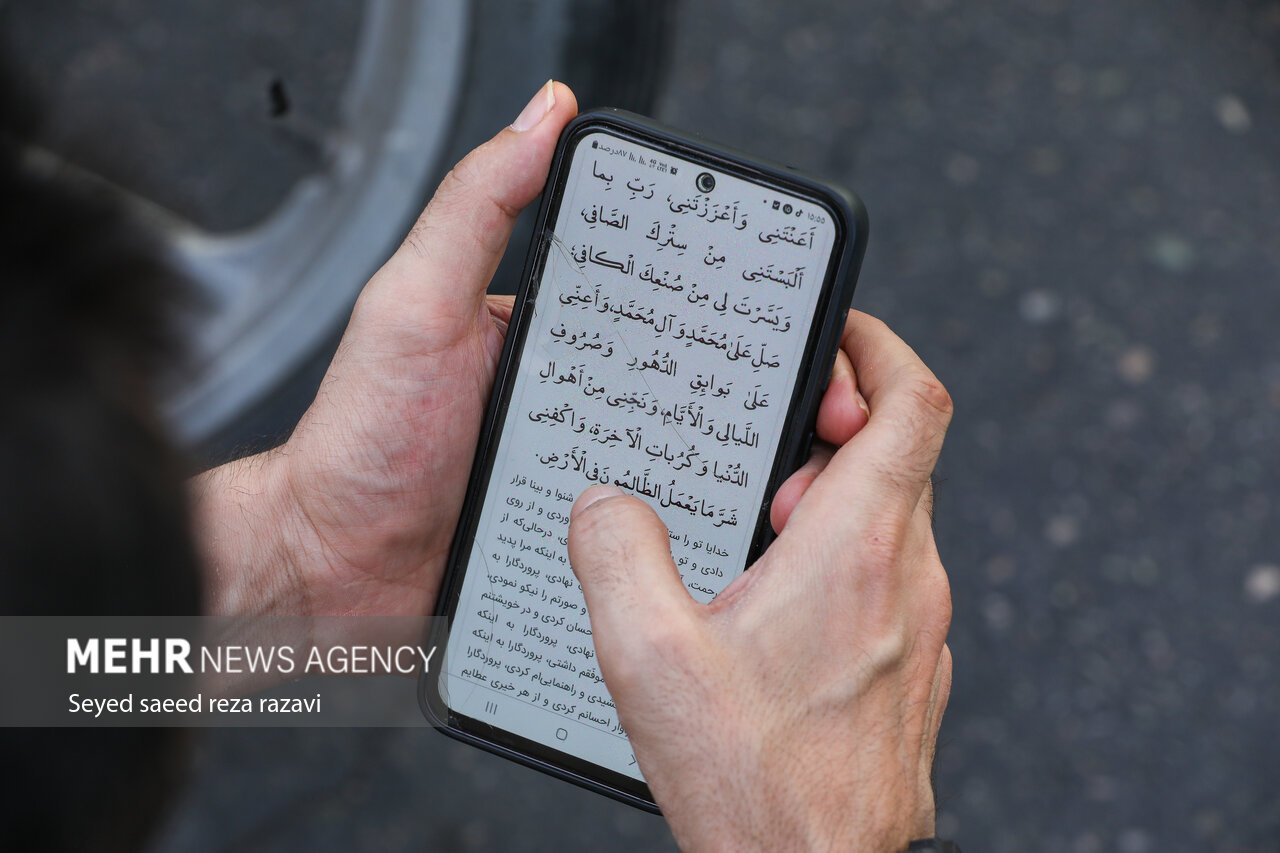 ۸۷درصد
۱۵:۵۵
أَعَنْتَنِی وَأَعْزَزْتَنِی، رَبِّ بِما
أَلْبَسْتَنِی مِنْ سِتْرِكَ الصَّافِی،
وَیَسَّرْتَ لِی مِنْ صُنْعِكَ الْكافِی،
صَلِّ عَلَیٰ مُحَمَّدٍ وَ آلِ مُحَمَّدٍ، وَأَعِنِّی
عَلَیٰ بَوائِقِ الدُّهُورِ وَصُرُوفِ
اللَّیالِی وَالْأَیَّامِ، وَنَجِّنِی مِنْ أَهْوالِ
الدُّنْیا وَكُرُباتِ الْآخِرَةِ، وَاكْفِنِی
شَرَّ مَا یَعْمَلُ الظَّالِمُونَ فِی الْأَرْضِ.
خدایا تو را شنوا و بینا قرار
دادی و تو را وردی و از روی
درحالی‌که از
به اینکه مرا پدید
نهادی، پروردگارا به
و صورتم را نیکو نمودی،
احسان کردی و در خویشتنم
نهادی، پروردگارا به اینکه
موفّقم داشتی، پروردگارا به اینکه
و راهنمایی‌ام کردی، پروردگارا
احسانم کردی و از هر خیری عطایم
MEHR NEWS AGENCY
Seyed saeed reza razavi